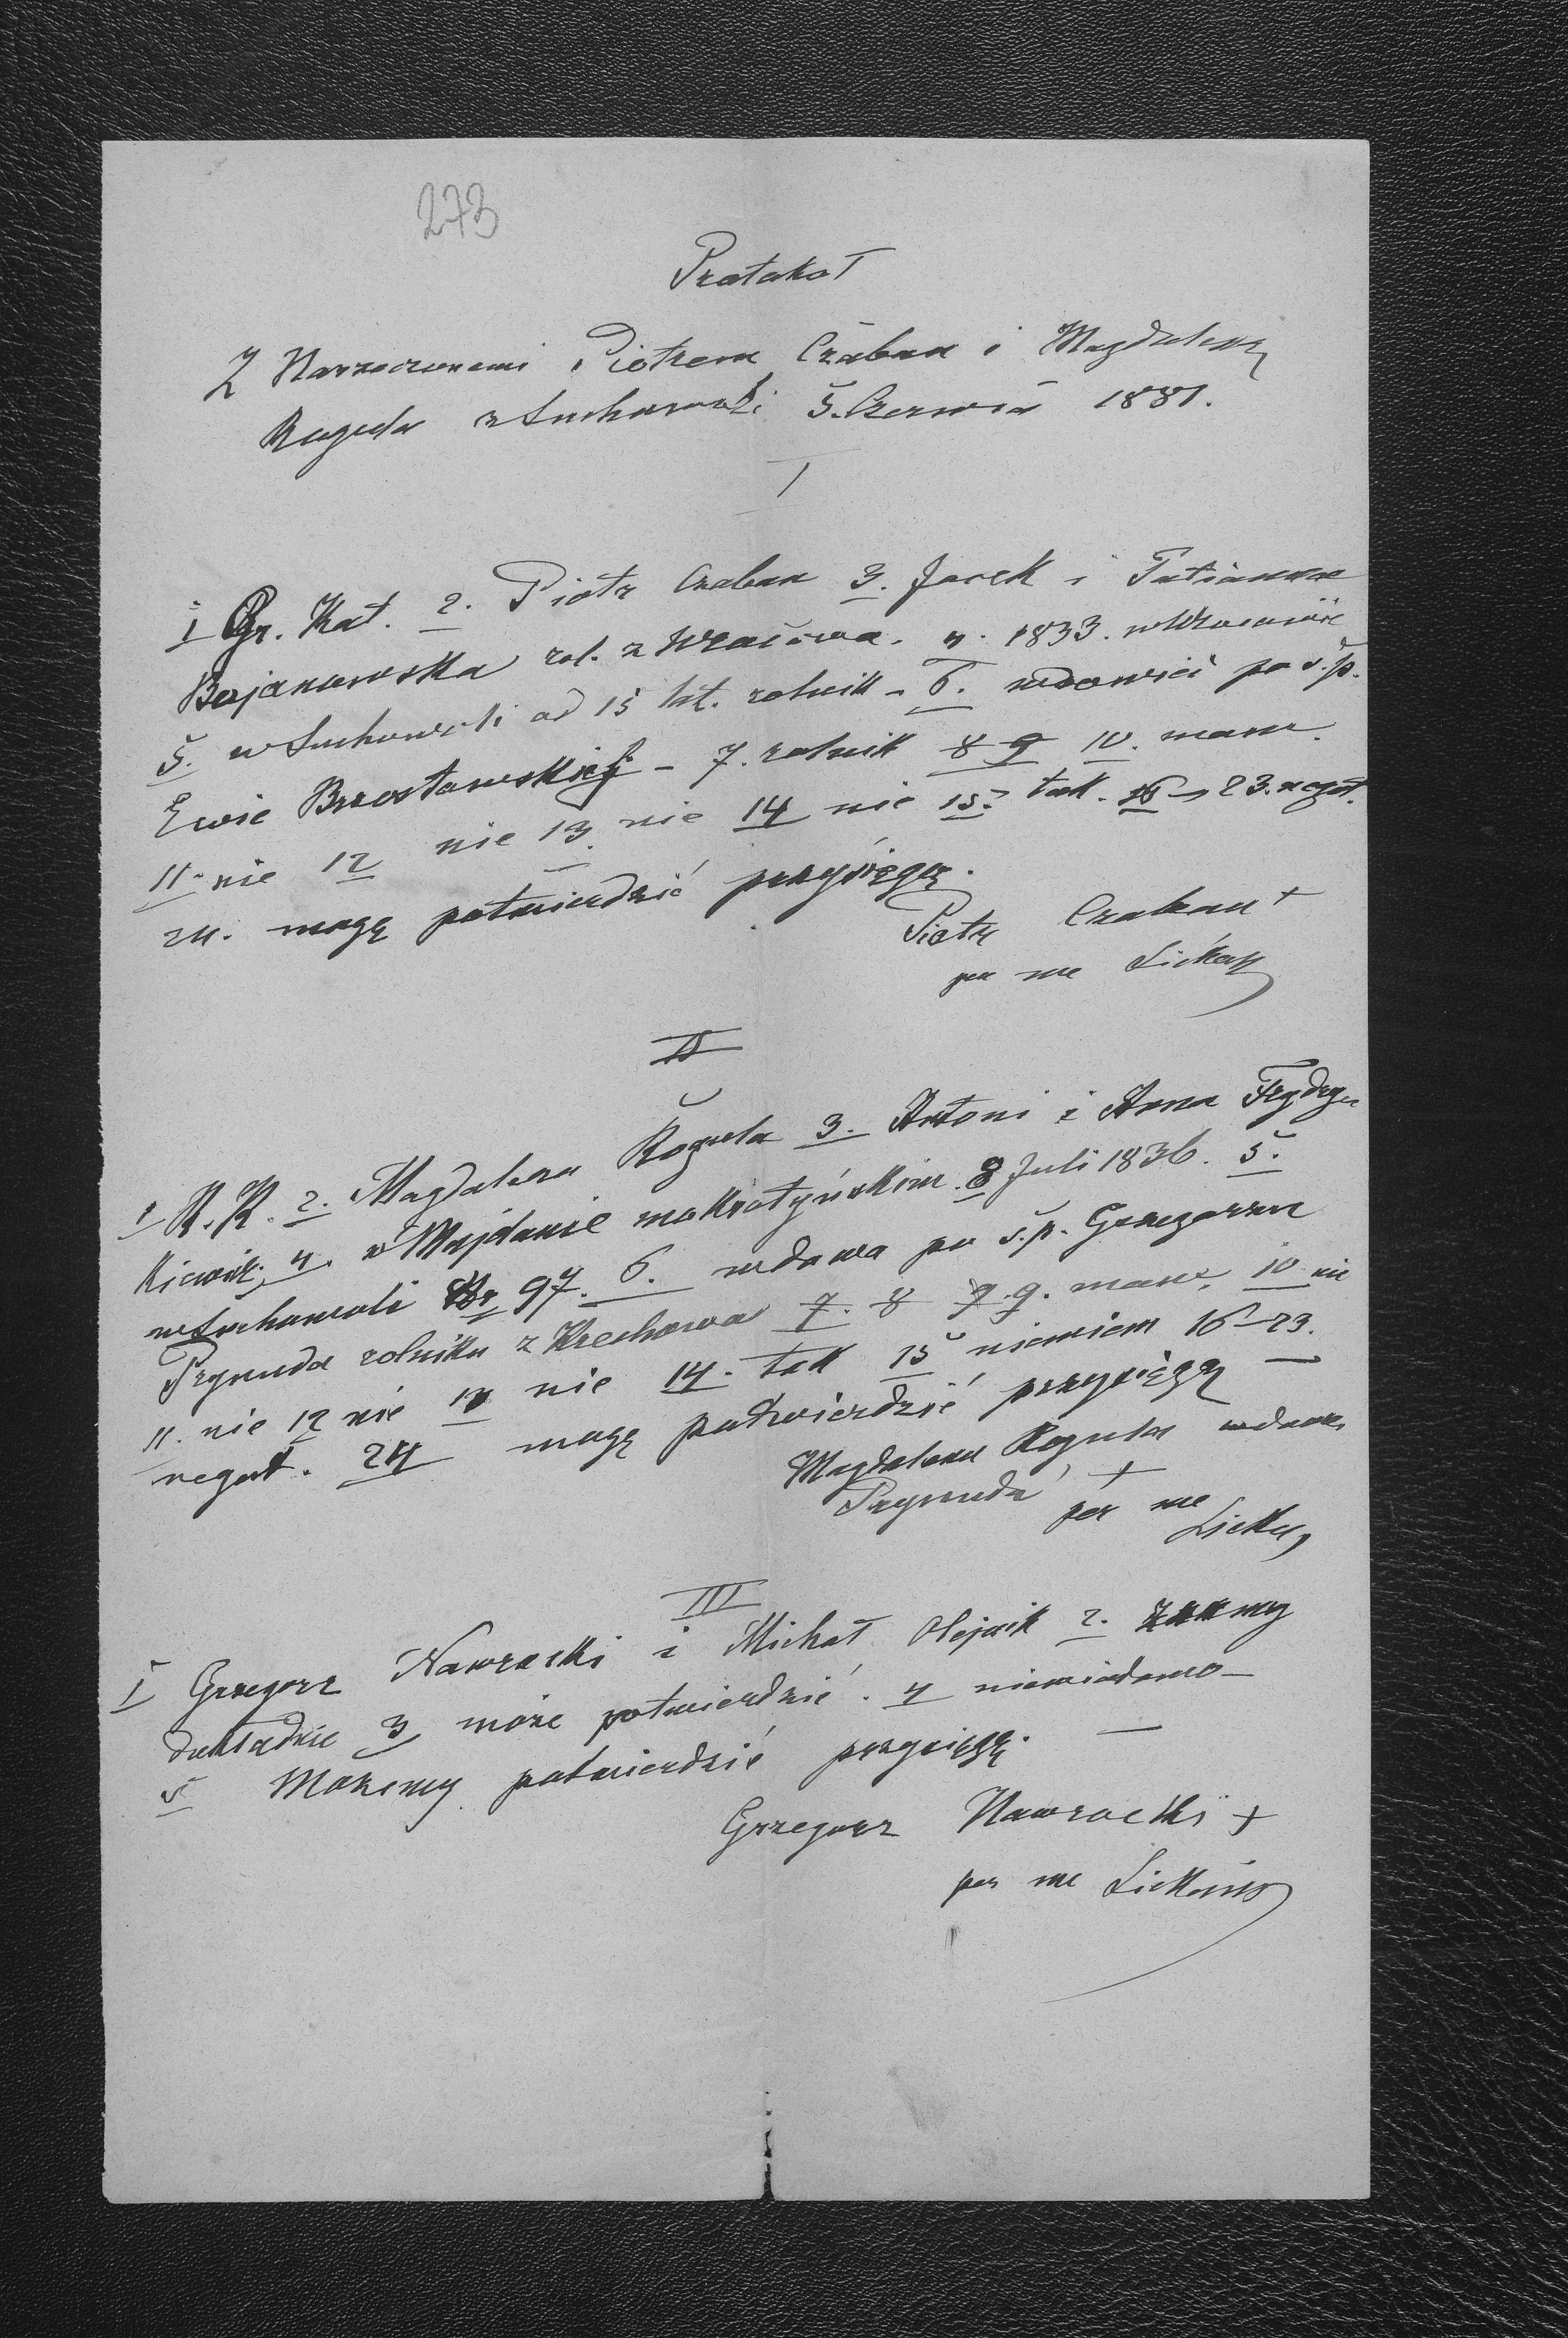 273
Protokoł
Z Narzeczonemi Piotrem Czaban i Magdaleną
Rogula z Suchowoli 5. Czerwca 1881.
I
1 Gr. Kat. 2. Piotr Czaban 3. Jacek i Tatianna
Bojanowska rol. z Wracowa. 4. 1833. w Wracowie
5. w Suchowoli od 15 lat. rolnik - 6. wdowiec po ś.p.
Ewie Brzostowskiej - 7. rolnik 8 9 10. mam.
11. nie 12 nie 13. nie 14 nie 15. tak. 16-23. negat.
24. mogę potwierdzić przysięgą.
Piotr Czaban +
per me Lickay
II
1 R. K. 2. Magdalena Rogula 3. Antoni i Anna Frydry
kiewicz, 4. w Majdanie mokrotyńskim. 8 Juli 1836. 5.
w Suchowoli Nr 97. 6. wdowa po ś.p. Grzegorzu
Prymuda rolniku z Krechowa 7. 8 9. 9. mam. 10 nie
11. nie 12 nie 13 nie 14. tak 15 niewiem 16-23.
negat. 24 mogę potwierdzić przysięgą —
Magdalena Rogula wdowa
Prymuda + per me
III
1 Grzegorz Nawrocki i Michał Olejnik 2. znamy
dokładnie 3 może potwierdzić. 4 niewiadomo -
5 Możemy potwierdzić przysięgą. —
Grzegorz Nawrocki +
per me